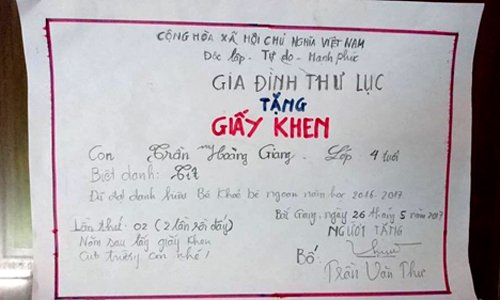 CỘNG HÒA XÃ HỘI CHỦ NGHĨA VIỆT NAM
Độc lập - Tự do - Hạnh phúc
GIA ĐÌNH THƯ LỤC
TẶNG
GIẤY KHEN
Con Trần Hoàng Giang. Lớp 4 tuổi
Biệt danh: Tít
Đã đạt danh hiệu Bé khoẻ bé ngoan năm học 2016-2017
Bắc Giang, ngày 26 tháng 5 năm 2017
Lần thứ: 02 (2 lần rồi đấy)
NGƯỜI TẶNG
Năm sau lấy giấy khen
của trường con nhé!
Bố
Trần Văn Thư